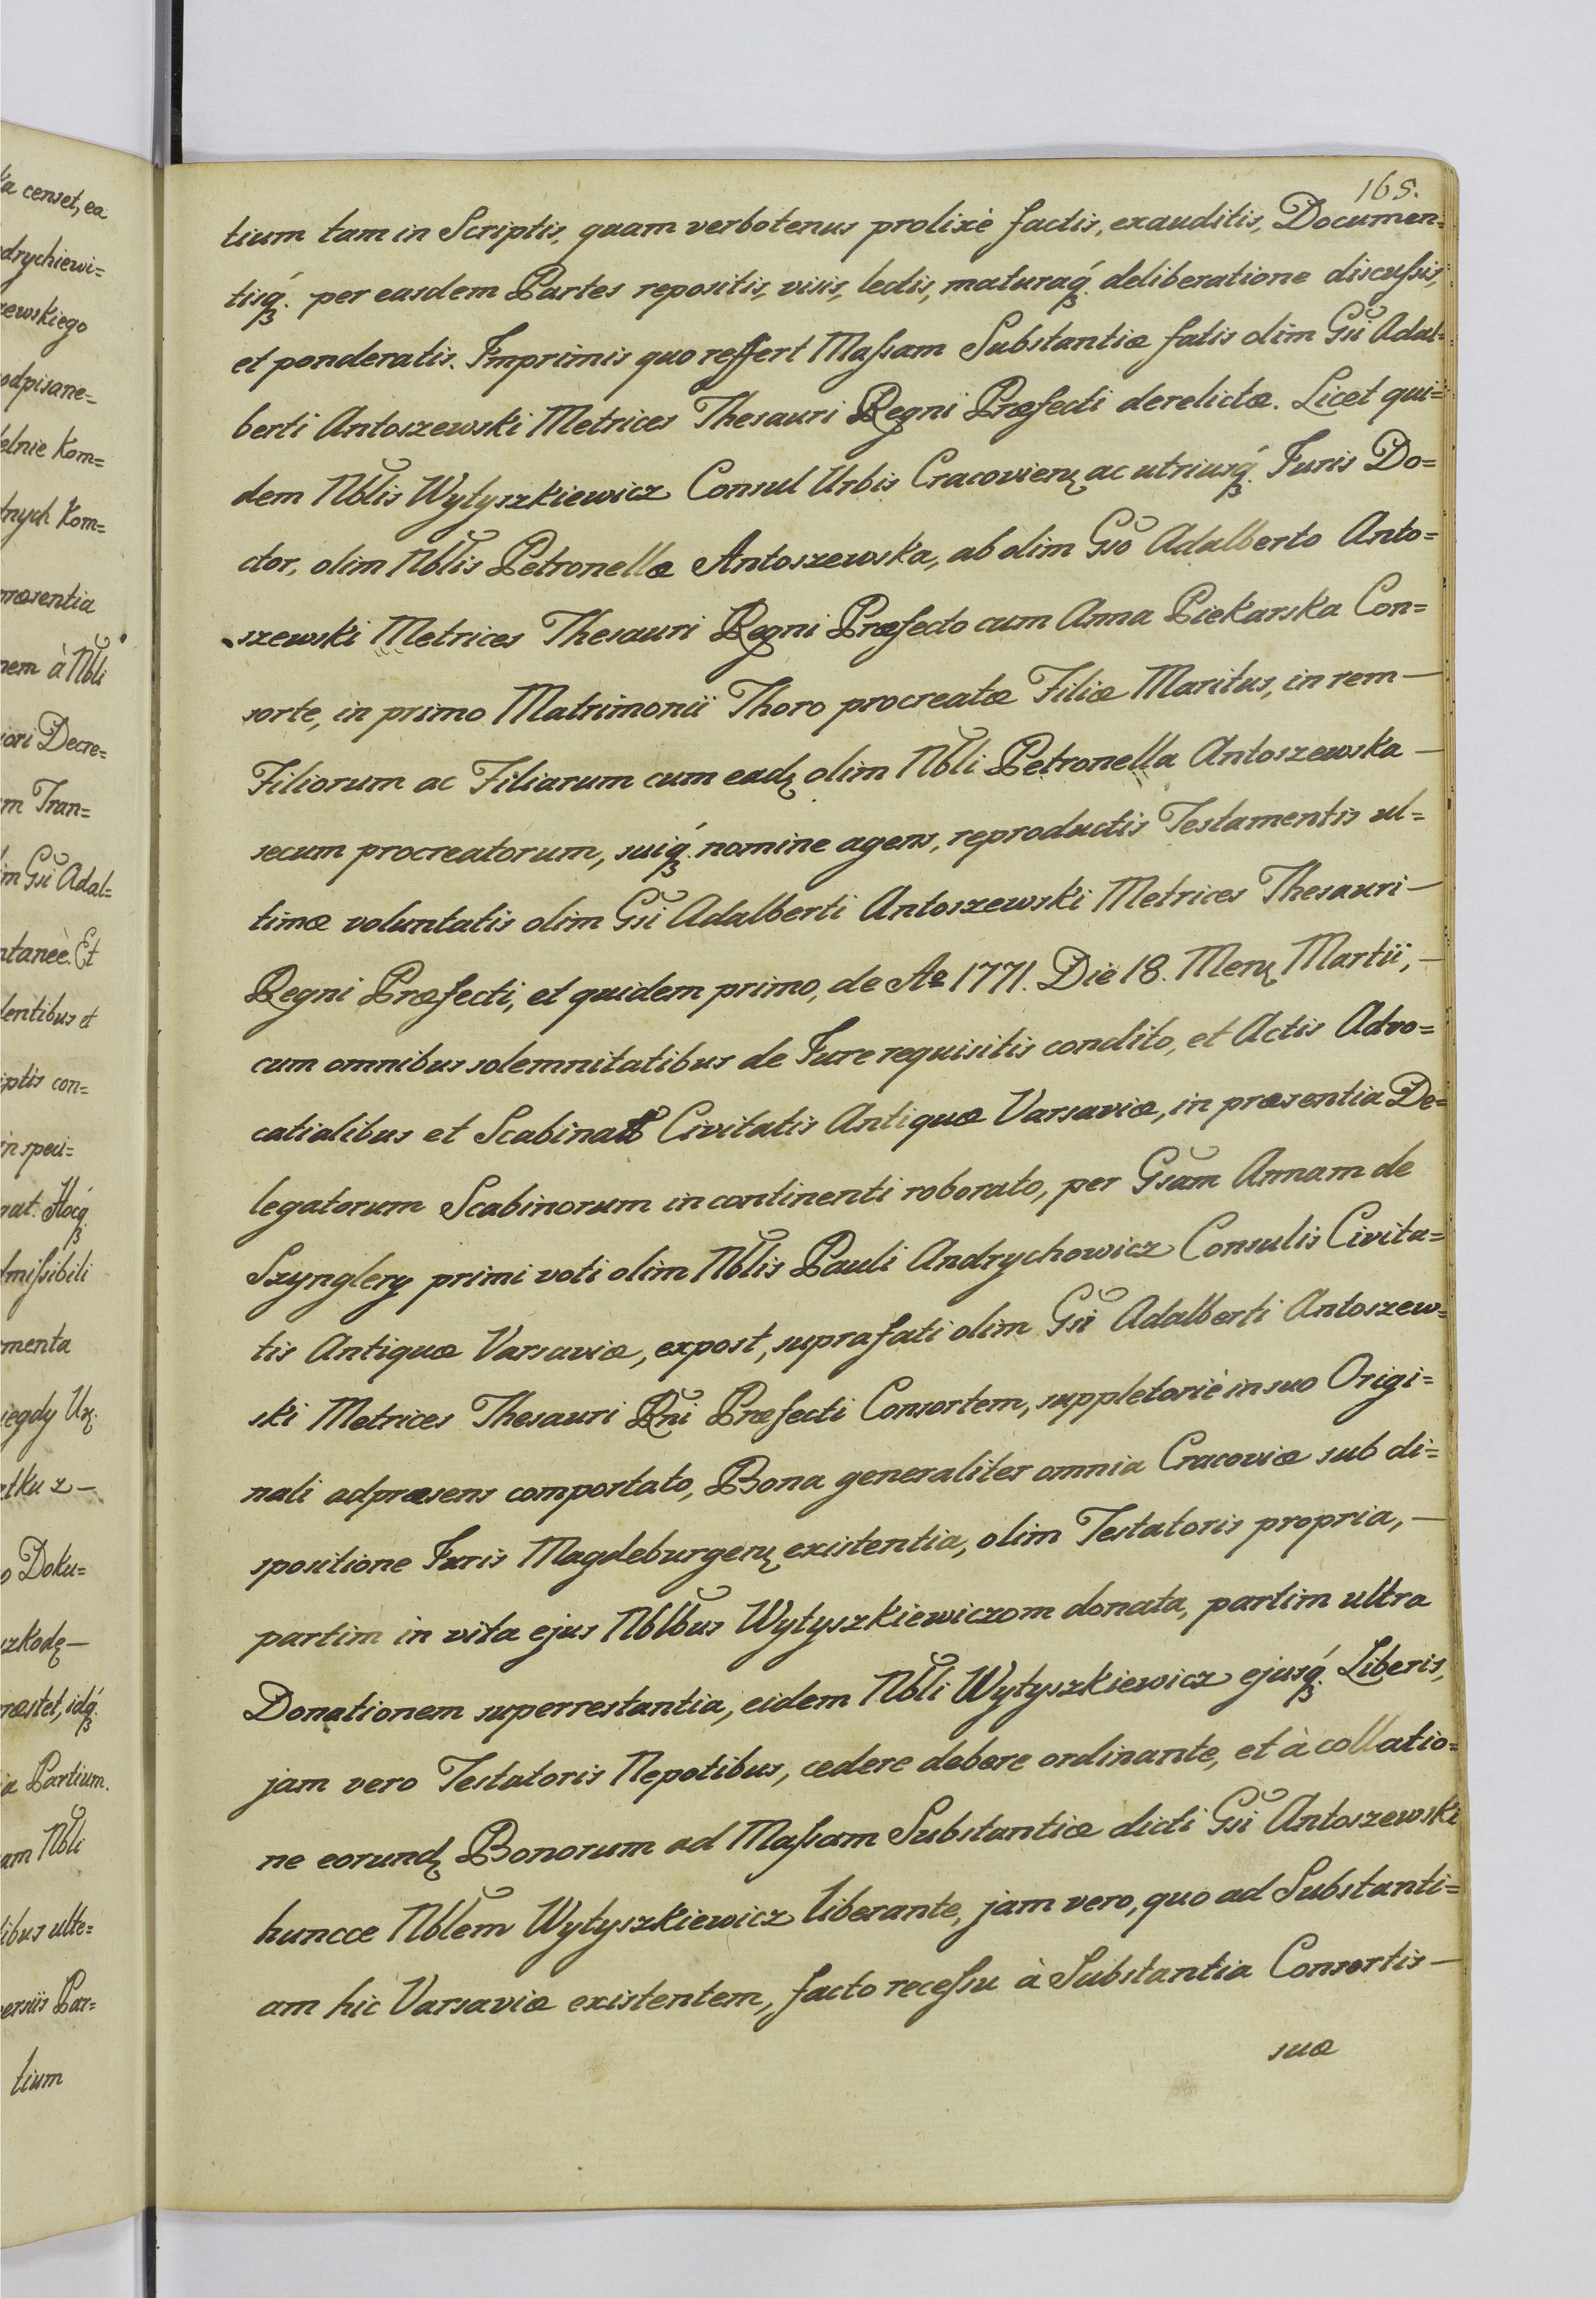 165.
tium tam in Scriptis, quam verbotenus prolixè factis, exauditis, Documen=
tisq́ꝫ. per easdem Partes repositis, visis, lectis, maturaq́ꝫ. deliberatione discuſsis,
et ponderatis. Imprimis quo reffert Maſsam Substantiæ fatis olim Gsi Adal=
berti Antoszewski Metrices Thesauri Regni Præfecti derelictæ. Licet qui=
dem Nblis Wytyszkiewicz Consul Urbis Cracovienꝫ ac utriusq́ꝫ. Juris Do=
ctor, olim Nblis Petronellæ Antoszewska, ab olim Gso Adalberto Anto=
szewski Metrices Thesauri Regni Præfecto cum Anna Piekarska Con=
sorte, in primo Matrimonii Thoro procreatæ Filiæ Maritus, in rem —
Filiorum ac Filiarum cum eadꝫ olim Nbli Petronella Antoszewska —
secum procreatorum, suiq́ꝫ. nomine agens, reproductis Testamentis ul=
timæ voluntatis olim Gsi Adalberti Antoszewski Metrices Thesauri —
Regni Præfecti, et quidem primo, de Aō 1771. Die 18. Menꝫ Martii, —
cum omnibus solemnitatibus de Jure requisitis condito, et Actis Advo=
catialibus et Scabinalb Civitatis Antiquæ Varsaviæ, in præsentia De=
legatorum Scabinorum in continenti roborato, per Gsam Annam de
Szynglery primi voti olim Nblis Pauli Andrychowicz Consulis Civita=
tis Antiquæ Varsaviæ, expost, suprafati olim Gsi Adalberti Antoszew=
ski Metrices Thesauri Rni Præfecti Consortem, suppletoriè in suo Origi=
nali adpræsens comportato, Bona generaliter omnia Cracoviæ sub di=
spositione Juris Magdeburgenꝫ existentia, olim Testatoris propria, —
partim in vita ejus Nblbus Wytyszkiewiczom donata, partim ultra
Donationem superrestantia, eidem Nbli Wytyszkiewicz ejusq́ꝫ. Liberis,
jam vero Testatoris Nepotibus, cedere debere ordinante, et à collatio=
ne eorundꝫ Bonorum ad Maſsam Substantiæ dicti Gsi Antoszewski
huncce Nblem Wytyszkiewicz liberante, jam vero, quo ad Substanti=
am hic Varsaviæ existentem, facto receſsu à Substantia Consortis —
suæ
a censet, ea
drychiewi=
zewskiego
odpisane=
elnie Kom=
nych Kom=
præsentia
nem à Nbli
iori Decre=
m Tran=
im Gsi Adal=
ntaneè. Et
dentibus et
iptis con=
in speci=
nat. Hocq́ꝫ
dmiſsibili
menta
iegdy Urꝫ.
tku z —
o Doku=
szkodę —
ræstet, idq́ꝫ.
ia Partium.
am Nbli
libus ulte=
ersiis Par=
tium